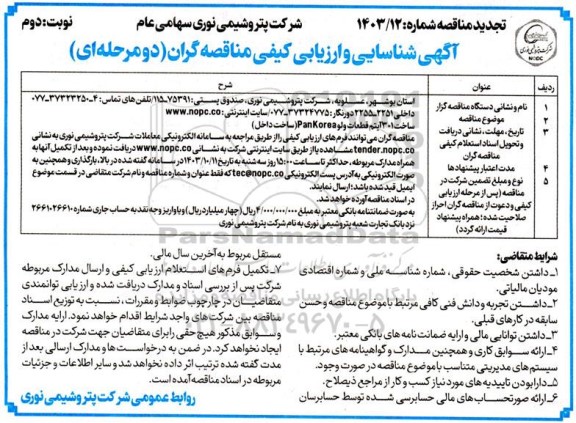 تجدید مناقصه شماره: ۱۴۰۳/۱۲
شرکت پتروشیمی نوری سهامی عام
نوبت: دوم
NOPC
آگهی شناسایی و ارزیابی کیفی مناقصه گران (دو مرحله‌ای)
ردیف
عنوان
شرح
۱
نام و نشانی دستگاه مناقصه گزار
استان بوشهر، عسلویه، شرکت پتروشیمی نوری، صندوق پستی: ۷۵۳۹۱-۱۱۵/ تلفن های تماس: ۴-۳۷۳۲۳۲۵۰-۰۷۷
داخلی ۲۲۵۱-۲۲۵۵ دورنگار: ۳۷۳۲۴۷۷۵-۰۷۷/ سایت اینترنتی: www.nopc.co
۲
موضوع مناقصه
ساخت ۳۰۱ آیتم قطعات ولو PanKorea (ساخت داخل)
۳
تاریخ، مهلت، نشانی دریافت
و تحویل اسناد استعلام کیفی
مناقصه گران
مناقصه گران می توانند فرم های ارزیابی کیفی را از طریق مراجعه به سامانه الکترونیکی معاملات شرکت پتروشیمی نوری به نشانی
tender.nopc.co مشاهده یا از طریق سایت اینترنتی شرکت به نشانی www.nopc.co دریافت نموده و بعد از تکمیل آنها به
همراه مدارک مربوطه، حداکثر تا ساعت ۱۵:۰۰ روز سه شنبه به تاریخ ۱۴۰۳/۱۰/۱۱ در سامانه گفته شده در بالا، بارگذاری و همچنین به
صورت الکترونیکی به آدرس پست الکترونیکی tec@nopc.co که فقط عنوان و شماره مناقصه و نام شرکت متقاضی در قسمت موضوع
ایمیل قید شده باشد؛ ارسال نمایند.
۴
مدت اعتبار پیشنهادها
در اسناد مناقصه آورده خواهد شد.
۵
نوع و مبلغ تضمین شرکت در
مناقصه (پس از مرحله ارزیابی
کیفی و دعوت از مناقصه گران احراز
صلاحیت شده؛ همراه پیشنهاد
قیمت ارائه گردد)
به صورت ضمانتنامه بانکی معتبر به مبلغ ۴/۰۰۰/۰۰۰/۰۰۰ ریال (چهار میلیارد ریال) و یا واریز وجه نقد به حساب جاری شماره ۲۶۶۱۰۲۴۶۶۱
نزد بانک تجارت شعبه پتروشیمی نوری به نام شرکت پتروشیمی نوری
شرایط متقاضی:
۱- داشتن شخصیت حقوقی، شماره شناسه ملی و شماره اقتصادی
مودیان مالیاتی.
۲- داشتن تجربه و دانش فنی کافی مرتبط با موضوع مناقصه و حسن
سابقه در کارهای قبلی.
۳- داشتن توانایی مالی و ارایه ضمانت نامه های بانکی معتبر.
۴- ارائه سوابق کاری و همچنین مدارک و گواهینامه های مرتبط با
سیستم های مدیریتی متناسب با موضوع مناقصه در صورت وجود.
۵- دارا بودن تاییدیه های مورد نیاز کسب و کار از مراجع ذیصلاح.
۶- ارائه صورتحساب های مالی حسابرسی شده توسط حسابرسان
مستقل مربوط به آخرین سال مالی.
۷- تکمیل فرم های استعلام ارزیابی کیفی و ارسال مدارک مربوطه
شرکت پس از بررسی اسناد و مدارک دریافت شده و ارزیابی توانمندی
متقاضیان در چارچوب ضوابط و مقررات، نسبت به توزیع اسناد
مناقصه بین شرکت های واجد شرایط اقدام خواهد نمود. ارایه مدارک
و سوابق مذکور هیچ حقی را برای متقاضیان جهت شرکت در مناقصه
ایجاد نخواهد کرد. در ضمن به درخواست ها و مدارک ارسالی بعد از
مدت گفته شده ترتیب اثر داده نخواهد شد و سایر اطلاعات و جزئیات
مربوطه در اسناد مناقصه آمده است.
روابط عمومی شرکت پتروشیمی نوری
ParsNamadData